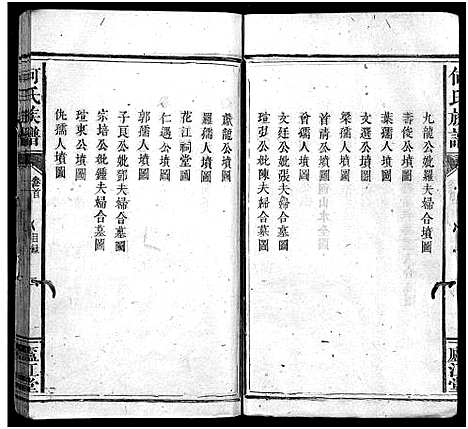 何氏族譜
九龍公妣羅夫婦合墳圖
壽俊公墳圖
葉孺人墳圖
文選公墳圖
梁孺人墳圖
首清公墳圖
文廷公妣張夫婦合墓圖
瑄弘公妣陳夫婦合墳圖
廬江堂
獻龍公墳圖
羅孺人墳圖
花江祠堂圖
仁遇公墳圖
郭孺人墳圖
子良公妣鄧夫婦合墓圖
宗培公妣鍾夫婦合墓圖
瑄東公墳圖
仇孺人墳圖
何氏族譜
卷首
目錄
廬江堂